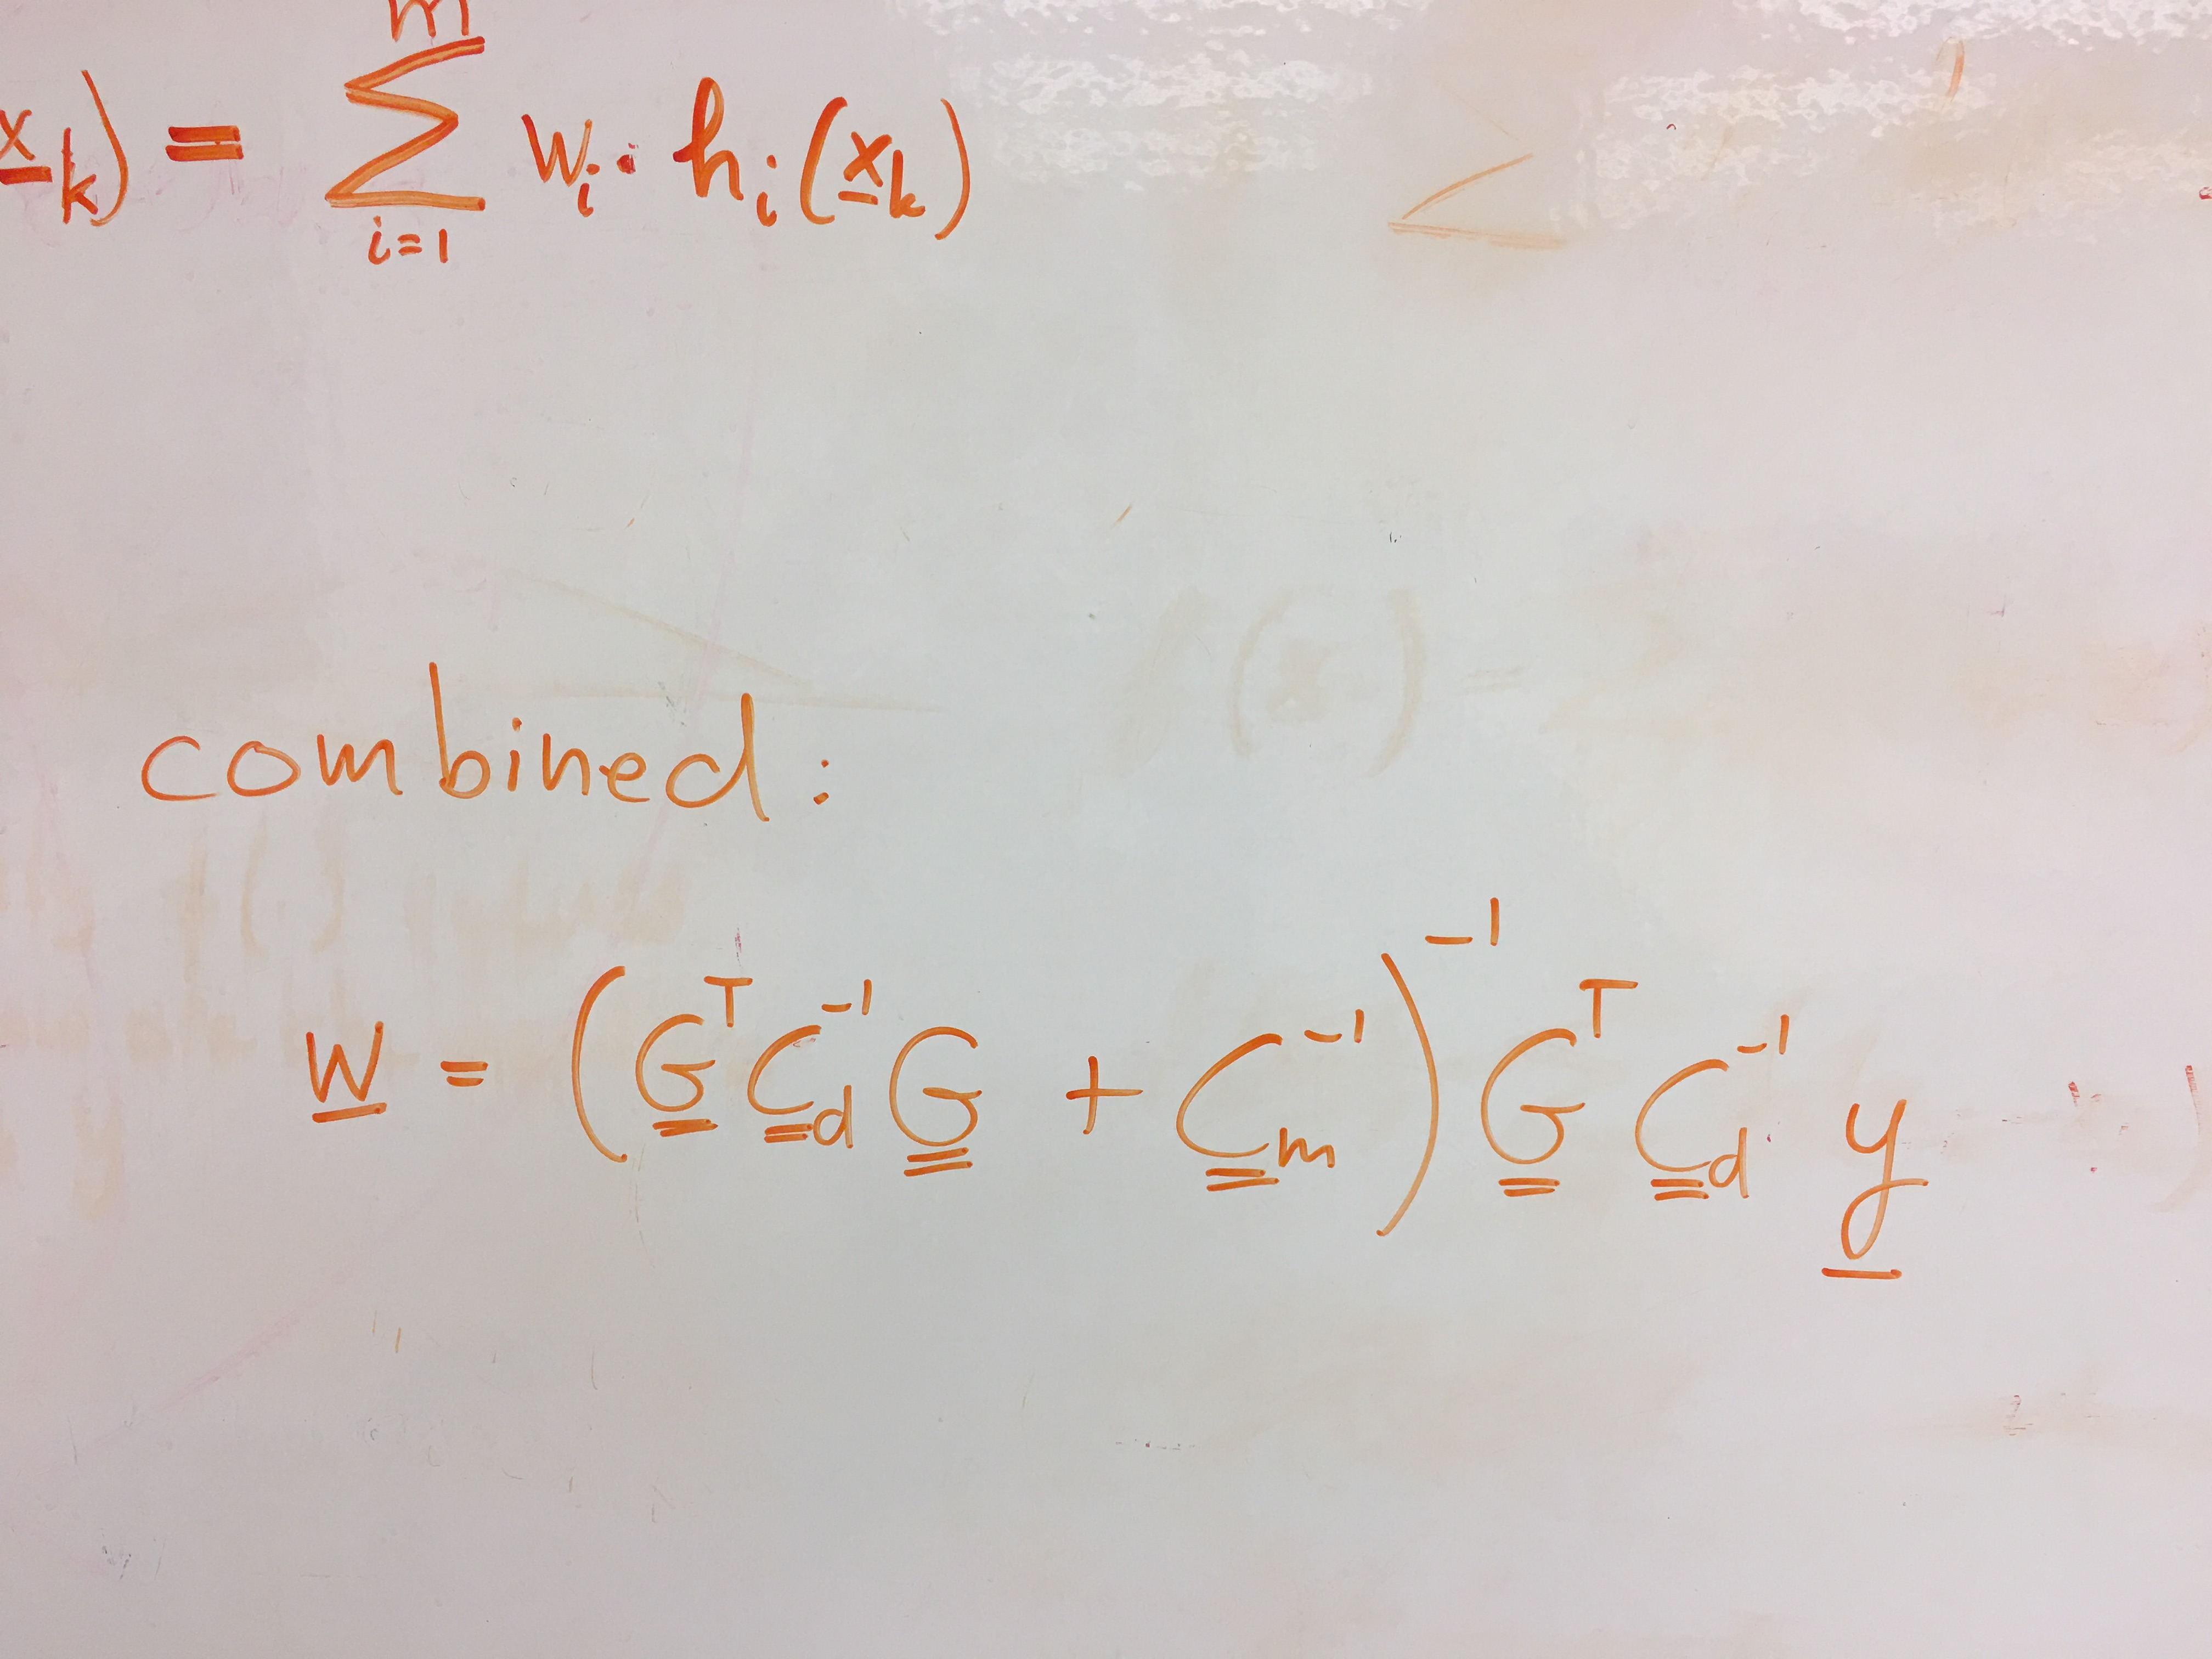 x̲ₖ) = ∑ᵢ₌₁ᵐ wᵢ · hᵢ(x̲ₖ)
combined:
w̲ = (G̳ᵀ C̳_d⁻¹ G̳ + C̳ₘ⁻¹)⁻¹ G̳ᵀ C̳_d⁻¹ y̲